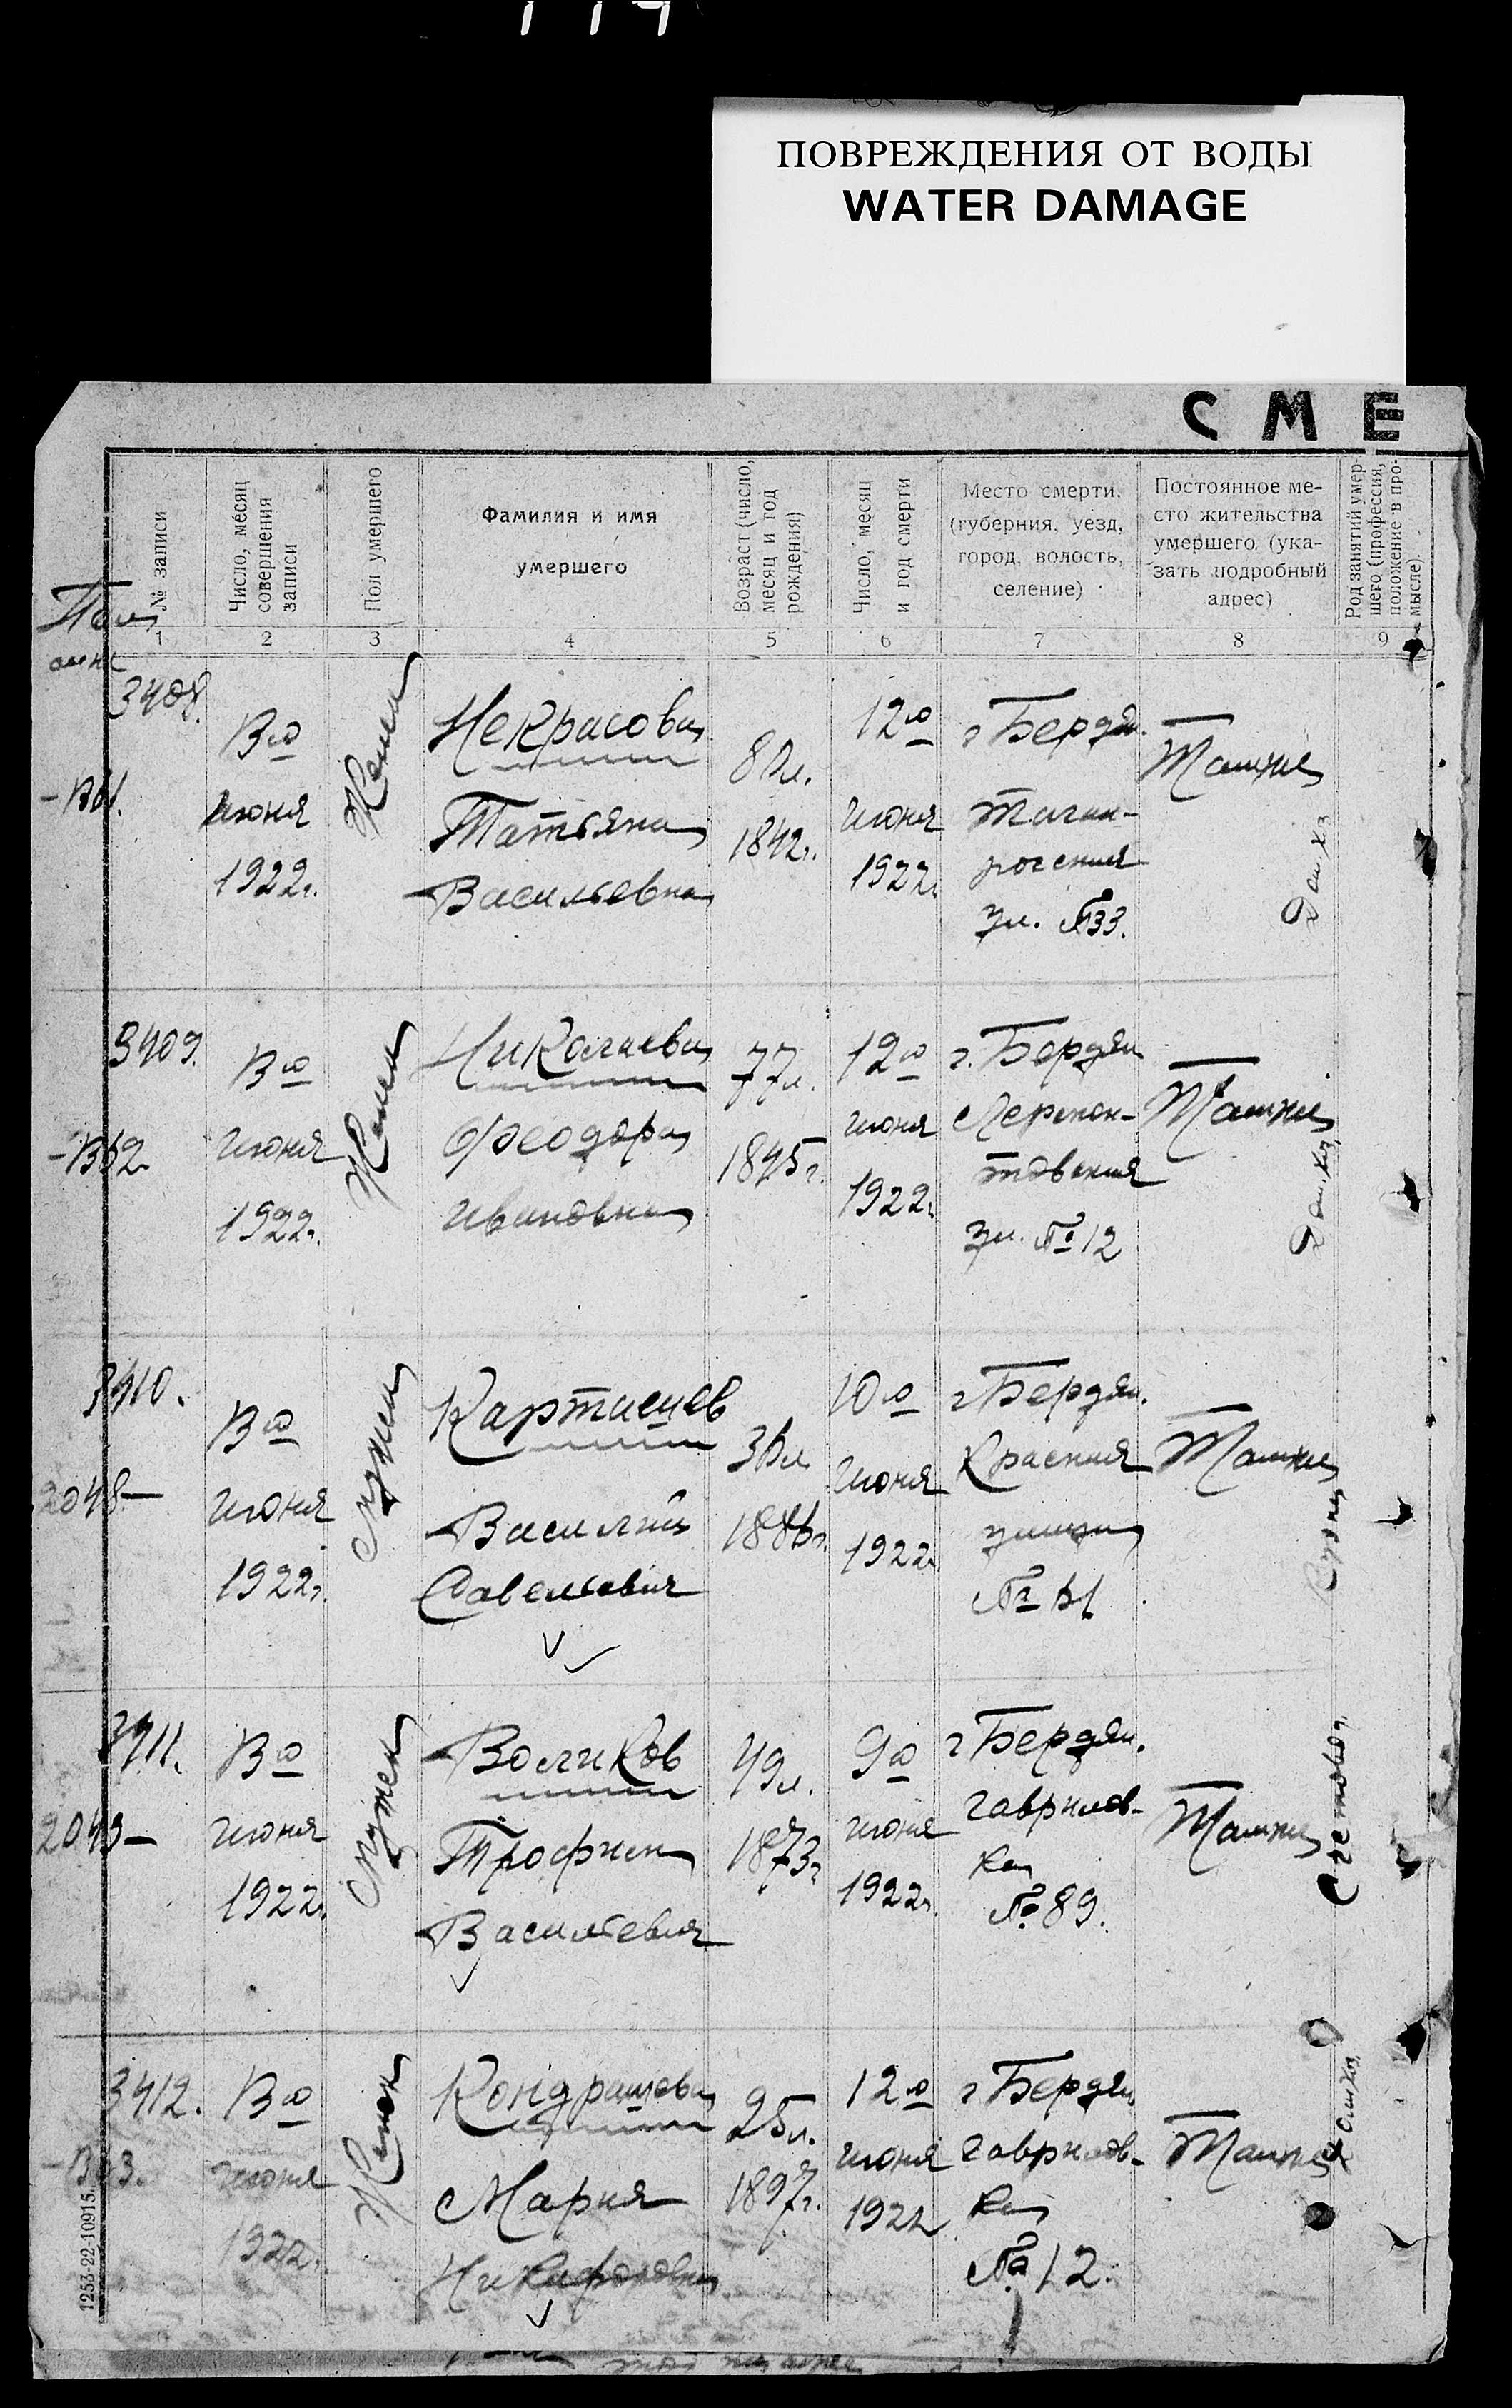 ПОВРЕЖДЕНИЯ ОТ ВОДЫ
WATER DAMAGE
СМЕ
№ записи
Число, месяц
совершения
записи
Пол умершего
Фамилия и имя
умершего
Возраст (число,
месяц и год
рождения)
Число, месяц
и год смерти
Место смерти,
(губерния, уезд,
город, волость,
селение)
Постоянное ме-
сто жительства
умершего. (ука-
зать подробный
адрес)
Род занятий умер-
шего (профессия,
положение в про-
мысле).
1 2 3 4 5 6 7 8 9
3408.
июня
1922г.
Женск
Некрасова
Татьяна
Васильевна
80л.
1842г.
12го
июня
1922г
г Бердян.
Таган-
рогская
ул. №33.
Там же
Дом. хоз
3409.
июня
1922г.
Женск
Николаева
Феодора
Ивановна
77л.
1845г.
12го
июня
1922г.
г. Бердян
Лермон-
товская
ул. № 12
Там же
Дом. хоз
3410.
2048
июня
1922г.
Мужск
Карташев
Василий
Савельевич
36л
1886г.
10го
июня
1922г
г Бердян.
Красная
улица
Там же
3411.
2049
июня
1922г.
Мужск
Воликов
Трофим
Васильевич
49л.
1873г
9го
июня
1922г.
г Бердян.
Гаврилов-
ка
№ 89.
Там же
Счетовод
3412.
июня
1922г.
Женск
Кондрашева
Мария
Никифоровна
25л.
1897г.
12го
июня
1922
г Бердян
Гаврилов-
ка
№ 12.
Там же
1253-22-10915.